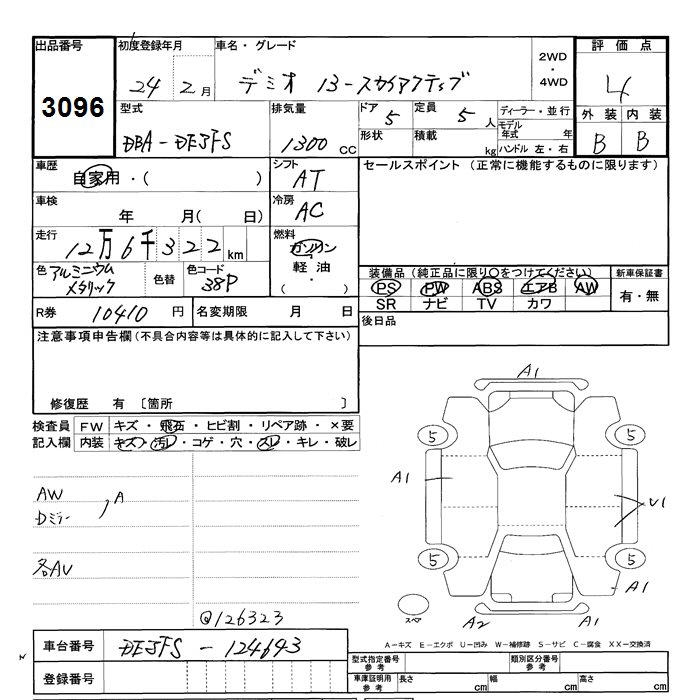 出品番号
3096
初度登録年月
24 2 月
車名・グレード
デミオ 13-スカイアクティブ
2WD
・
4WD
評価点
4
型式
DBA-DE3FS
排気量
1300 CC
ドア 5
定員 5 人
形状
積載 kg
ディーラー・並行
モデル年式 年
ハンドル 左・右
外装 内装
B B
車歴
自家用・( )
シフト
AT
セールスポイント (正常に機能するものに限ります)
車検
年 月( 日)
冷房
AC
走行
12万6千322 km
燃料
ガソリン
軽油
( ・ )
色 アルミニウムメタリック
色替
色コード
38P
装備品(純正品に限り○をつけてください)
新車保証書
PS PW ABS エアB AW
SR ナビ TV カワ
有・無
R券 10410 円
名変期限 月 日
後日品
注意事項申告欄(不具合内容等は具体的に記入して下さい)
修復歴 有 〔箇所 〕
検査員記入欄
FW キズ・飛石・ヒビ割・リペア跡・×要
内装 キズ・汚レ・コゲ・穴・スレ・キレ・破レ
AW
Dミラー
A
各AU
@126323
A1
5 5
A1
U1
5 5
A1
スペア
A2 A1
A-キズ E-エクボ U-凹み W-補修跡 S-サビ C-腐食 XX-交換済
車台番号 DE3FS-124643
登録番号
型式指定番号 参考
類別区分番号 参考
車庫証明用 参考
長さ cm
幅 cm
高さ cm